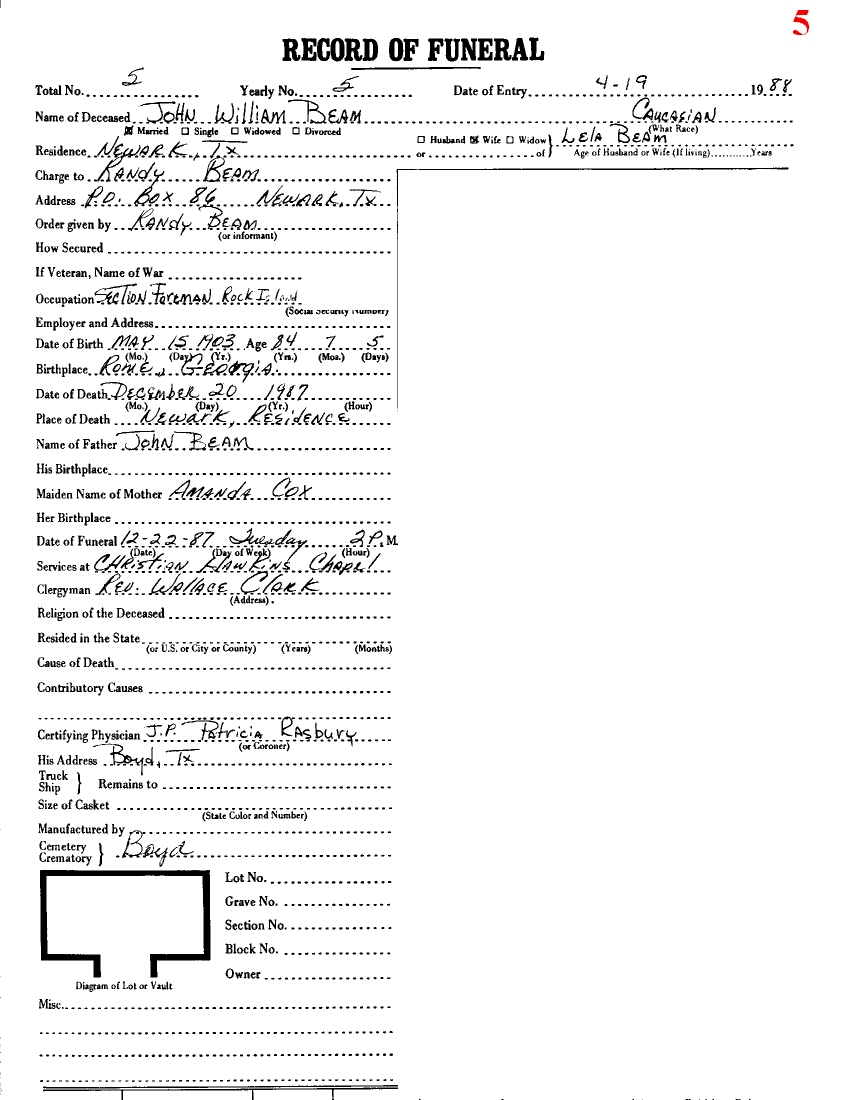 5
RECORD OF FUNERAL
Total No. 5 Yearly No. 5 Date of Entry 4-19 1988
Name of Deceased John William Beam Caucasian
(What Race)
☒ Married ☐ Single ☐ Widowed ☐ Divorced
☐ Husband ☒ Wife ☐ Widow or of } Lela Beam
Residence Newark, Tx Age of Husband or Wife (If living) Years
Charge to Randy Beam
Address P.O. Box 86 Newark, Tx
Order given by Randy Beam
(or informant)
How Secured
If Veteran, Name of War
Occupation Section Foreman Rock Island
(Social Security Number)
Employer and Address
Date of Birth May 15 1903 Age 84 7 5
(Mo.) (Day) (Yr.) (Yrs.) (Mos.) (Days)
Birthplace Rome, Georgia
Date of Death December 20 1987
(Mo.) (Day) (Yr.) (Hour)
Place of Death Newark, Residence
Name of Father John Beam
His Birthplace
Maiden Name of Mother Amanda Cox
Her Birthplace
Date of Funeral 12-22-87 Tuesday 2 P.M.
(Date) (Day of Week) (Hour)
Services at Christian Hawkins Chapel
Clergyman Rev. Wallace Clark
(Address)
Religion of the Deceased
Resided in the State
(or U.S. or City or County) (Years) (Months)
Cause of Death
Contributory Causes
Certifying Physician J.P. Patricia Rasbury
(or Coroner)
His Address Boyd, Tx
Truck
Ship } Remains to
Size of Casket
(State Color and Number)
Manufactured by
Cemetery
Crematory } Boyd
Lot No.
Grave No.
Section No.
Block No.
Owner
Diagram of Lot or Vault
Misc.